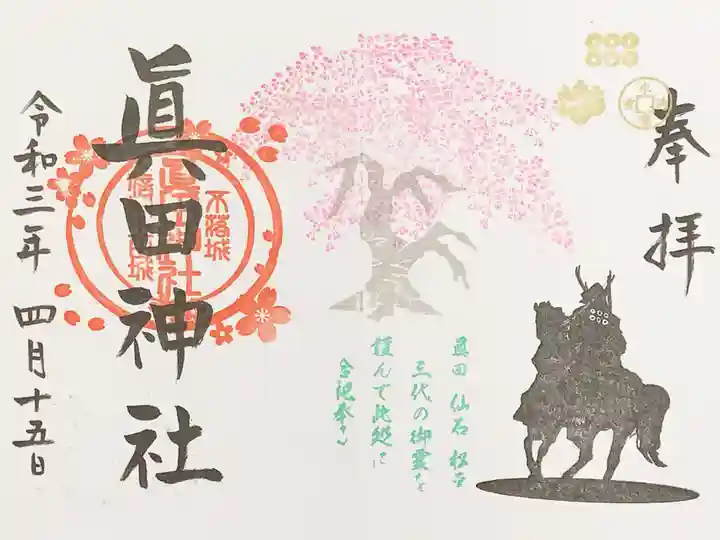 奉拝
真田 仙石 松平
三代の御霊を
謹んで此処に
合祀奉る
眞田神社
不落城
令和三年 四月十五日